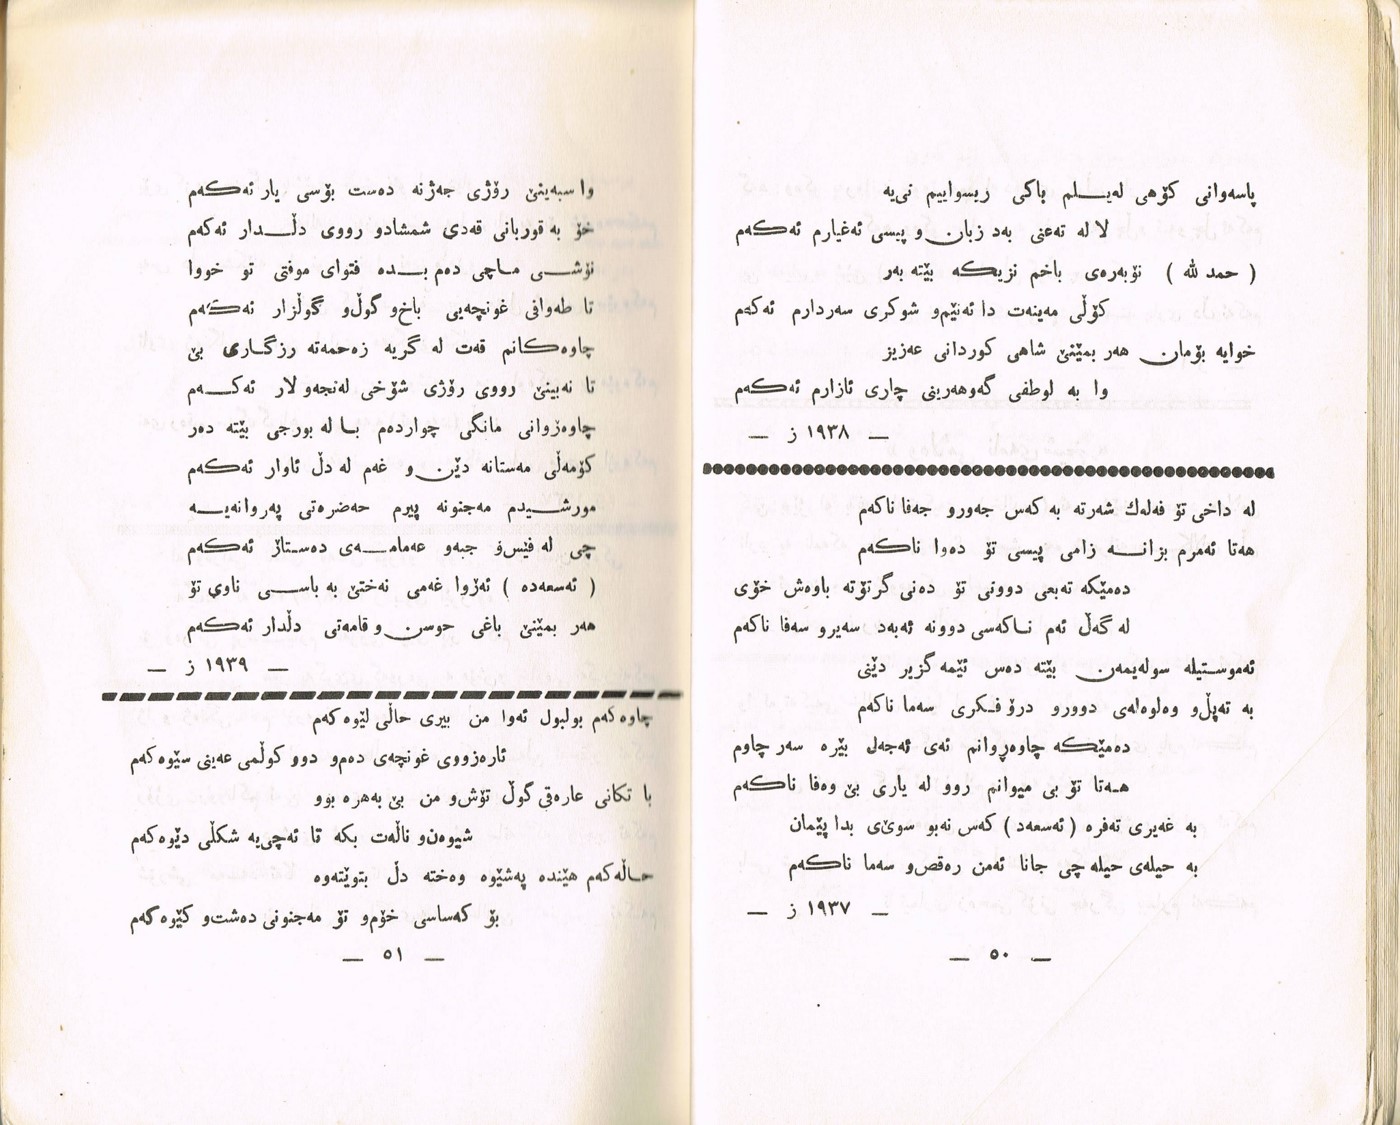 پاسەوانی کۆهی لەیـلم باکی ریسواییم نی‌یە
لا لە تەعنی بەد زبان و پیسی ئەغیارم ئەکەم
( حمد لله ) نۆبەرەی باخم نزیکە بێتە بەر
کۆڵی مەینەت دا ئەنێم‌و شوکری سەردارم ئەکەم
خوایە بۆمان هەر بمێنێ شاهی کوردانی عەزیز
وا بە لوطفی گەوهەرینی چاری ئازارم ئەکەم
— ١٩٣٨ ز —
لە داخی تۆ فەلەك شەرتە بە کەس جەورو جەفا ناکەم
هەتا ئەمرم بزانـە زامی پیسی تۆ دەوا ناکەم
دەمێکە تەبعی دوونی تۆ دەنی گرتۆتە باوەش خۆی
لە گەڵ ئەم ناکەسی دوونە ئەبەد سەیرو سەفا ناکەم
ئەموستیلە سولەیمەن بێتە دەس ئێمە گزیر دێنی
بە تەپڵ‌و وەلولەی دوورو درۆ فکری سەما ناکەم
دەمێکە چاوەڕوانم ئەی ئەجەل بێرە سەر چاوم
هـەتا تۆ بی میوانم روو لە یاری بێ وەفا ناکەم
بە غەیری تەفرە ( ئەسعەد ) کەس نەبو سوێی بدا پێمان
بە حیلەی حیلە چی جانا ئەمن رەقص‌و سەما ناکەم
— ١٩٣٧ ز —
— ٥٠ —
وا سبەینێ رۆژی جەژنە دەست بۆسی یار ئەکەم
خۆ بە قوربانی قەدی شمشادو رووی دڵـدار ئەکەم
نۆشـی مـاچی دەم بـدە فتوای موفتی تو خووا
تا طەوافی غونچەیی باخ‌و گوڵ‌و گوڵزار ئەکەم
چاوەکانم قەت لە گریە زەحمەتە رزگـاری بێ
تا نەبینێ رووی رۆژی شۆخی لەنجەو لار ئەکـەم
چاوەڕوانی مانگی چواردەم بـا لە بورجی بێتە دەر
کۆمەڵی مەستانە دێن و غەم لە دڵ ئاوار ئەکەم
مورشـیدم مەجنونە پیرم حەضرەتی پەروانەیـە
چی لە فێس‌و جبەو عەمامـەی دەستاڕ ئەکەم
( ئەسعەدە ) ئەڕوا غەمی نەختێ بە باسـی ناوی تۆ
هەر بمێنێ باغی حوسن و قامەتی دڵدار ئەکەم
— ١٩٣٩ ز —
چاوەکەم بولبول ئەوا من بیری حاڵی لێوەکەم
ئارەزووی غونچەی دەم‌و دوو کوڵمی عەینی سێوەکەم
با تکانی عارەقی گوڵ تۆش‌و من بێ بەهرە بوو
شیوەن‌و ناڵەت بکە تا ئەچی‌یە شکڵی دێوەکەم
حـاڵەکەم هێندە پەشێوە وەختە دڵ بتوێتەوە
بۆ کەساسی خۆم‌و تۆ مەجنونی دەشت‌و کێوەکەم
— ٥١ —